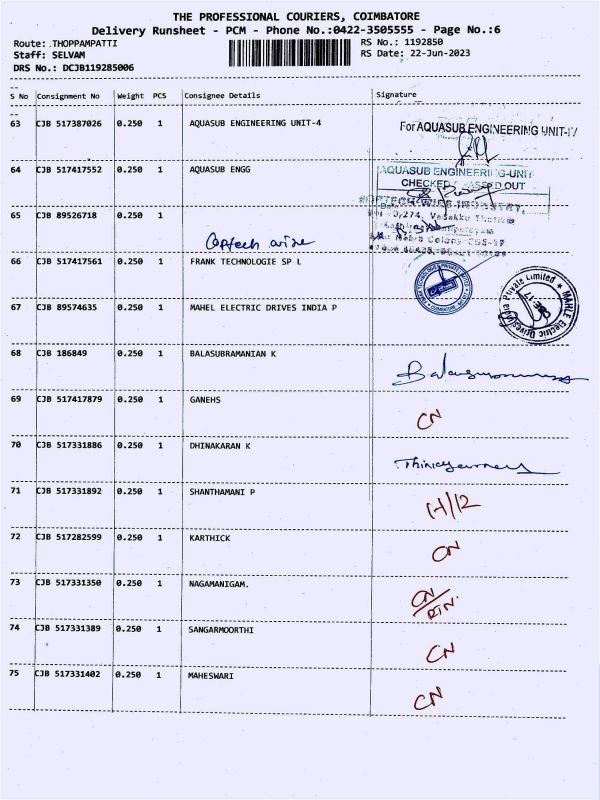 THE PROFESSIONAL COURIERS, COIMBATORE
Delivery Runsheet - PCM - Phone No.:0422-3505555 - Page No.:6
Route: THOPPAMPATTI RS No.: 1192850
Staff: SELVAM RS Date: 22-Jun-2023
DRS No.: DCJB119285006
S No Consignment No Weight PCS Consignee Details Signature
63 CJB 517387026 0.250 1 AQUASUB ENGINEERING UNIT-4
For AQUASUB ENGINEERING UNIT-IV
64 CJB 517417552 0.250 1 AQUASUB ENGG
AQUASUB ENGINEERING-UNIT
CHECKED PASSED OUT
65 CJB 89526718 0.250 1
66 CJB 517417561 0.250 1 FRANK TECHNOLOGIE SP L
67 CJB 89574635 0.250 1 MAHEL ELECTRIC DRIVES INDIA P
MAHLE Electric Drives Private Limited
68 CJB 186849 0.250 1 BALASUBRAMANIAN K
69 CJB 517417879 0.250 1 GANEHS CN
70 CJB 517331886 0.250 1 DHINAKARAN K
71 CJB 517331892 0.250 1 SHANTHAMANI P
72 CJB 517282599 0.250 1 KARTHICK CN
73 CJB 517331350 0.250 1 NAGAMANIGAM. CN
74 CJB 517331389 0.250 1 SANGARMOORTHI CN
75 CJB 517331402 0.250 1 MAHESWARI CN